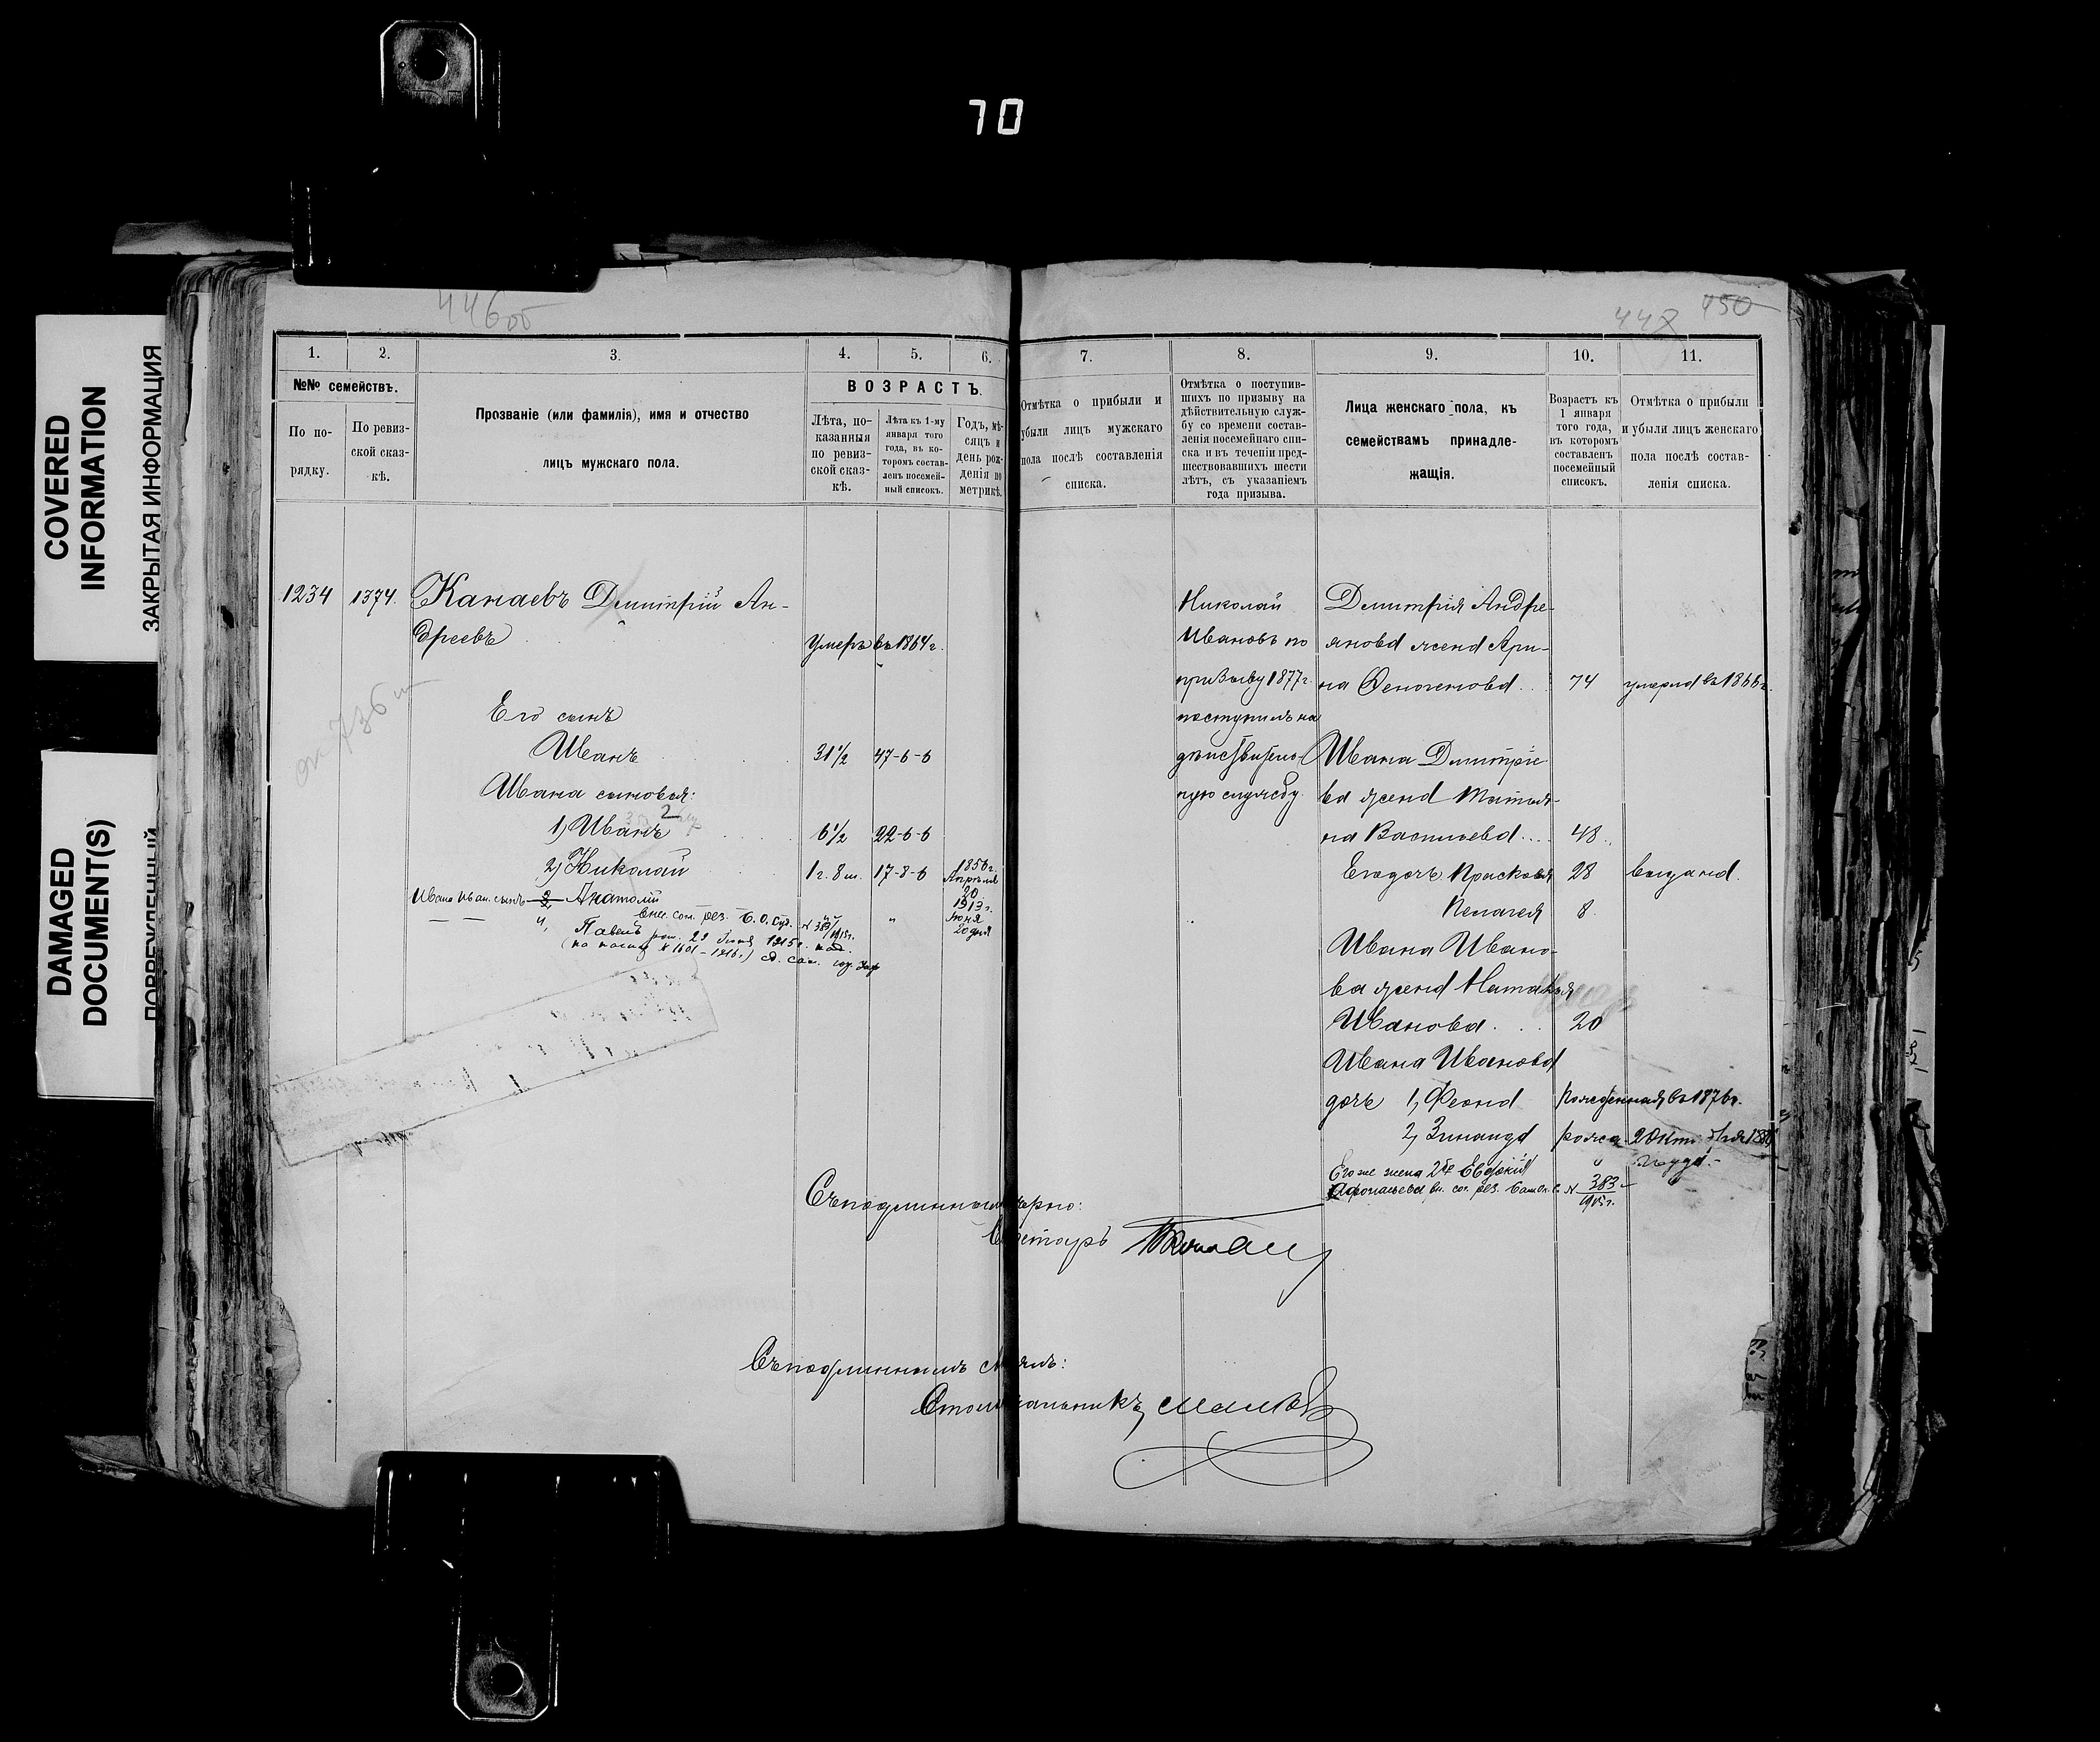 70
COVERED
INFORMATION
ЗАКРЫТАЯ ИНФОРМАЦИЯ
DAMAGED
DOCUMENT(S)
446 об
448 450
1. 2. 3. 4. 5. 6.
№№ семействъ.
По по-
рядку.
По ревиз-
ской сказ-
кѣ.
Прозваніе (или фамилія), имя и отчество
лицъ мужскаго пола.
ВОЗРАСТЪ.
Лѣта, по-
казанныя
по ревиз-
ской сказ-
кѣ.
Лѣта къ 1-му
января того
года, въ ко-
торомъ состав-
ленъ посемей-
ный списокъ.
Годъ, мѣ-
сяцъ и
день рож-
денія по
метрикѣ.
1234 1374. Канаевъ Димитрій Ан-
дреевъ
умеръ въ 1864 г.
Его сынъ
Иванъ 31½ 47-6-6
Ивана сыновья:
1) Иванъ 6½ 22-6-6
2) Николай 1 г. 8 м. 17-8-6 1856 г.
Апрѣля
20
Ивана Иван. сынъ 3 Анатолій 1913 г.
Іюня
20 дня
4, Павелъ
7. 8. 9. 10. 11.
Отмѣтка о прибыли и
убыли лицъ мужскаго
пола послѣ составленія
списка.
Отмѣтка о поступив-
шихъ по призыву на
дѣйствительную служ-
бу со времени состав-
ленія посемейнаго спи-
ска и въ теченіи пред-
шествовавшихъ шести
лѣтъ, съ указаніемъ
года призыва.
Лица женскаго пола, къ
семействамъ принадле-
жащія.
Возрастъ къ
1 января
того года,
въ которомъ
составленъ
посемейный
списокъ.
Отмѣтка о прибыли
и убыли лицъ женскаго
пола послѣ состав-
ленія списка.
Николай
Ивановъ по
призыву 1877 г.
поступилъ на
дѣйствитель-
ную службу
Димитрія Андре-
янова жена Ари-
на Феногенова 74 умерла въ 1866 г.
Ивана Димитріе-
ва жена Татья-
на Васильева 48
Его дочь Прасковья 28 выдана.
Пелагея 8
Ивана Ивано-
ва жена Наталья
Иванова 20
Ивана Иванова
дочь 1, Феона рожденная въ 1876 г.
2, Зинаида
Его же жена 2я Евдокія
Афонасьева 383
Съ подлиннымъ вѣрно:
Съ подлиннымъ
Столоначальникъ